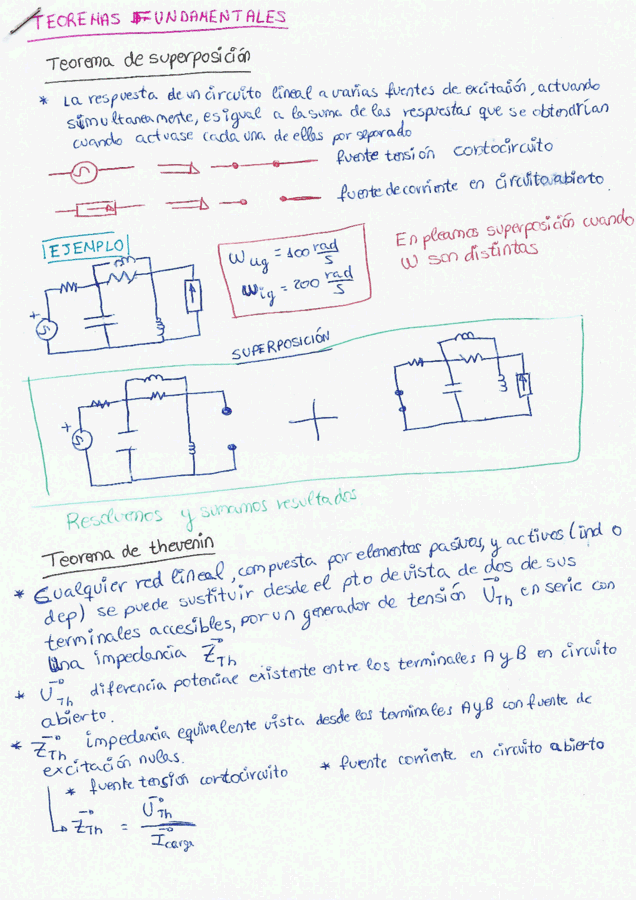 TEOREMAS FUNDAMENTALES
Teorema de superposición
* La respuesta de un circuito lineal a varias fuentes de excitación, actuando
simultaneamente, es igual a la suma de las respuestas que se obtendrían
cuando actuase cada una de ellas por separado
fuente tensión cortocircuito
fuente de corriente en circuito abierto.
EJEMPLO
ω ug = 100 rad/s
ω ig = 200 rad/s
Empleamos superposición cuando
ω son distintas
SUPERPOSICIÓN
+
Resolvemos y sumamos resultados
Teorema de thevenin
* Cualquier red lineal, compuesta por elementos pasivos, y activos (ind o
dep) se puede sustituir desde el pto de vista de dos de sus
terminales accesibles, por un generador de tensión U Th en serie con
una impedancia Z Th
* U Th diferencia potencial existente entre los terminales A y B en circuito
abierto.
* Z Th impedancia equivalente vista desde los terminales A y B con fuente de
excitación nulas.
* fuente tensión cortocircuito * fuente corriente en circuito abierto
Z Th = U Th / I carga